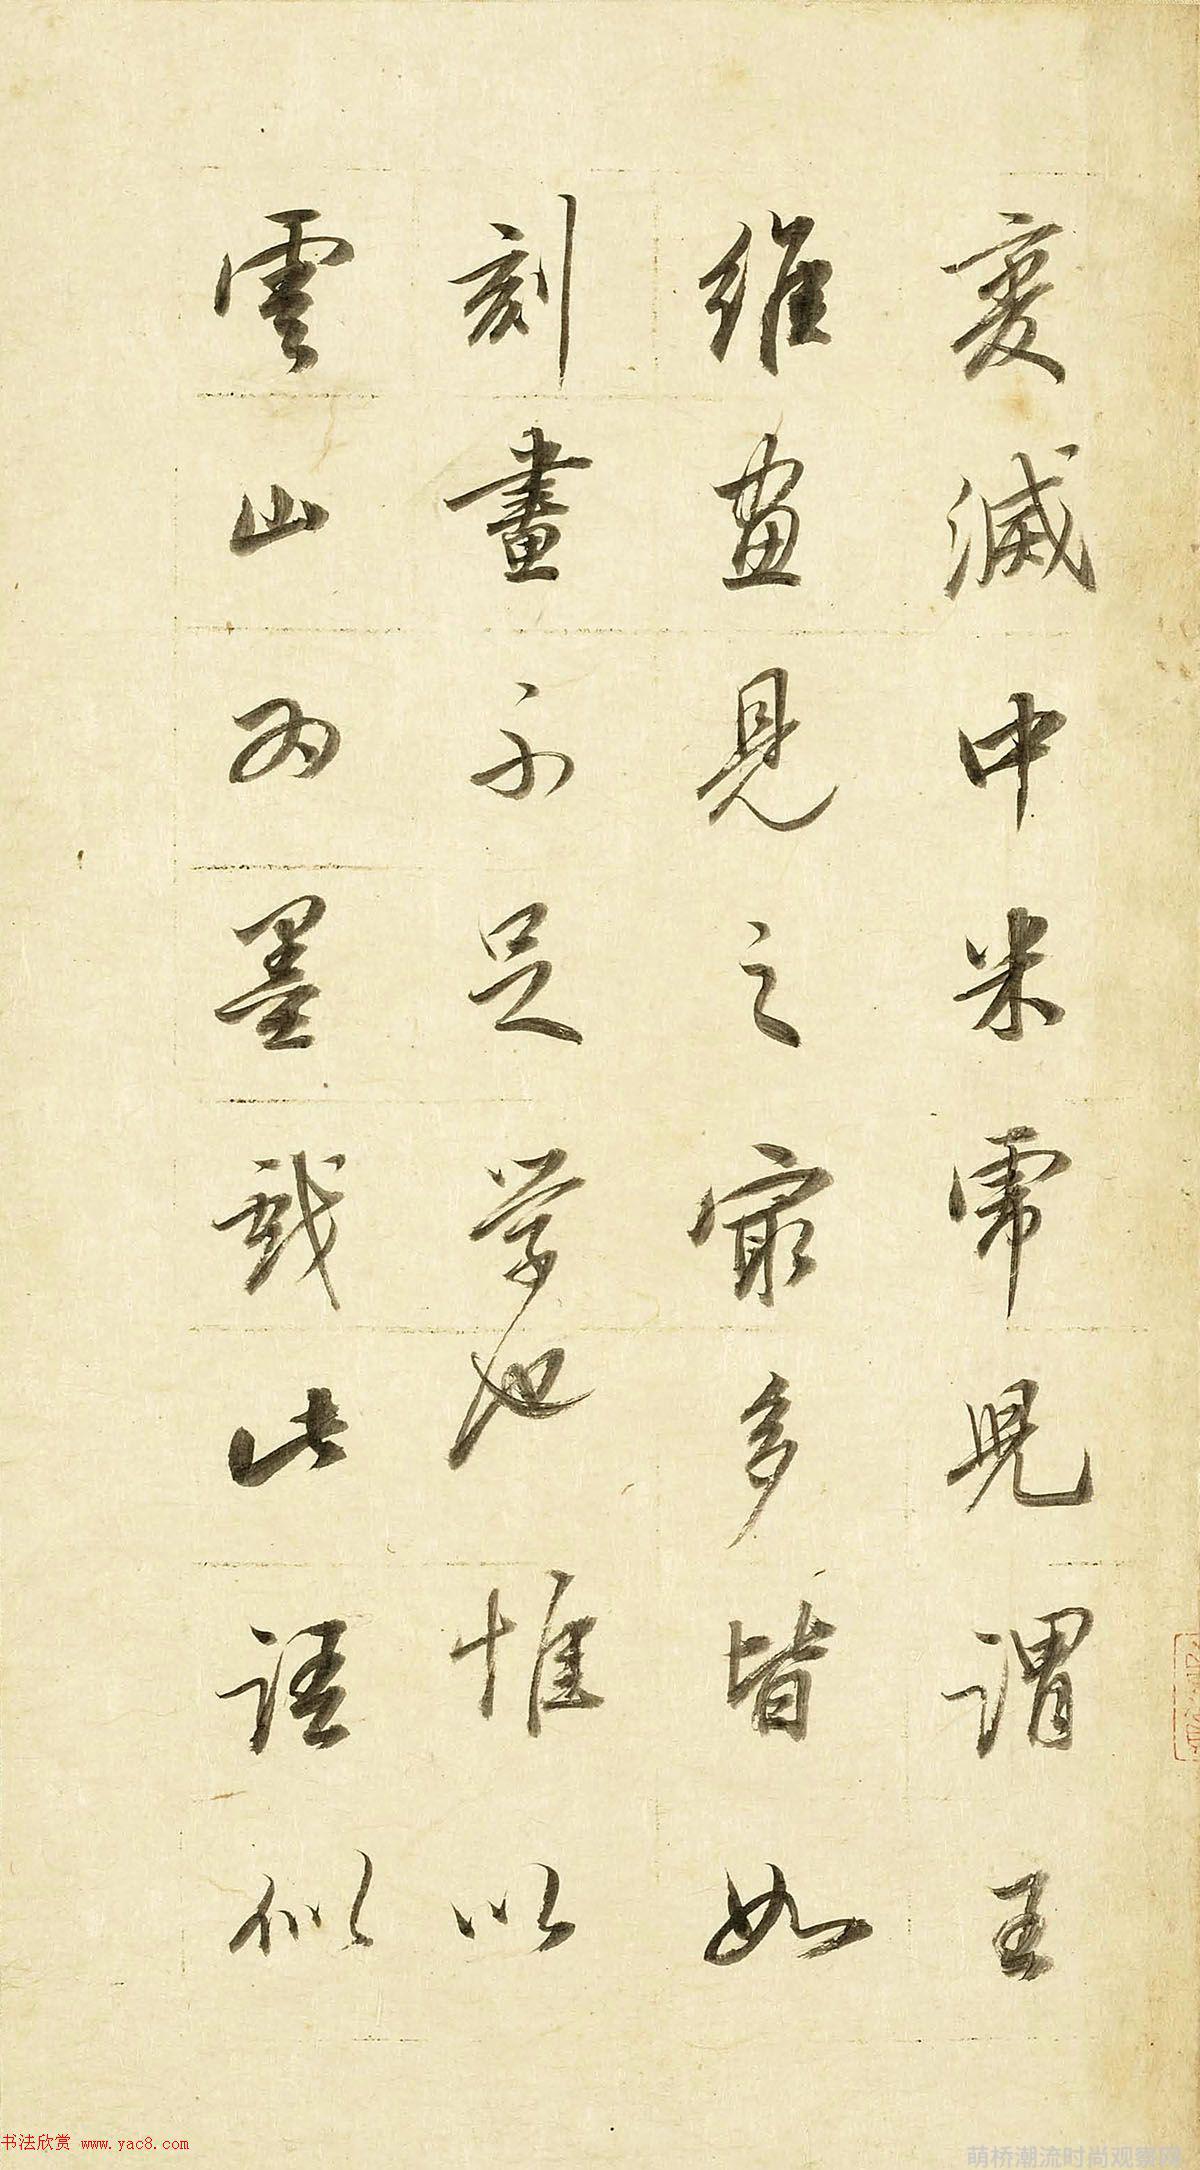 变滅中米虎児谓王
維畫見之最多皆如
刻畫不足学也惟以
雲山为墨戯此語似
书法欣赏 www.yac8.com
萌桥潮流时尚观察网